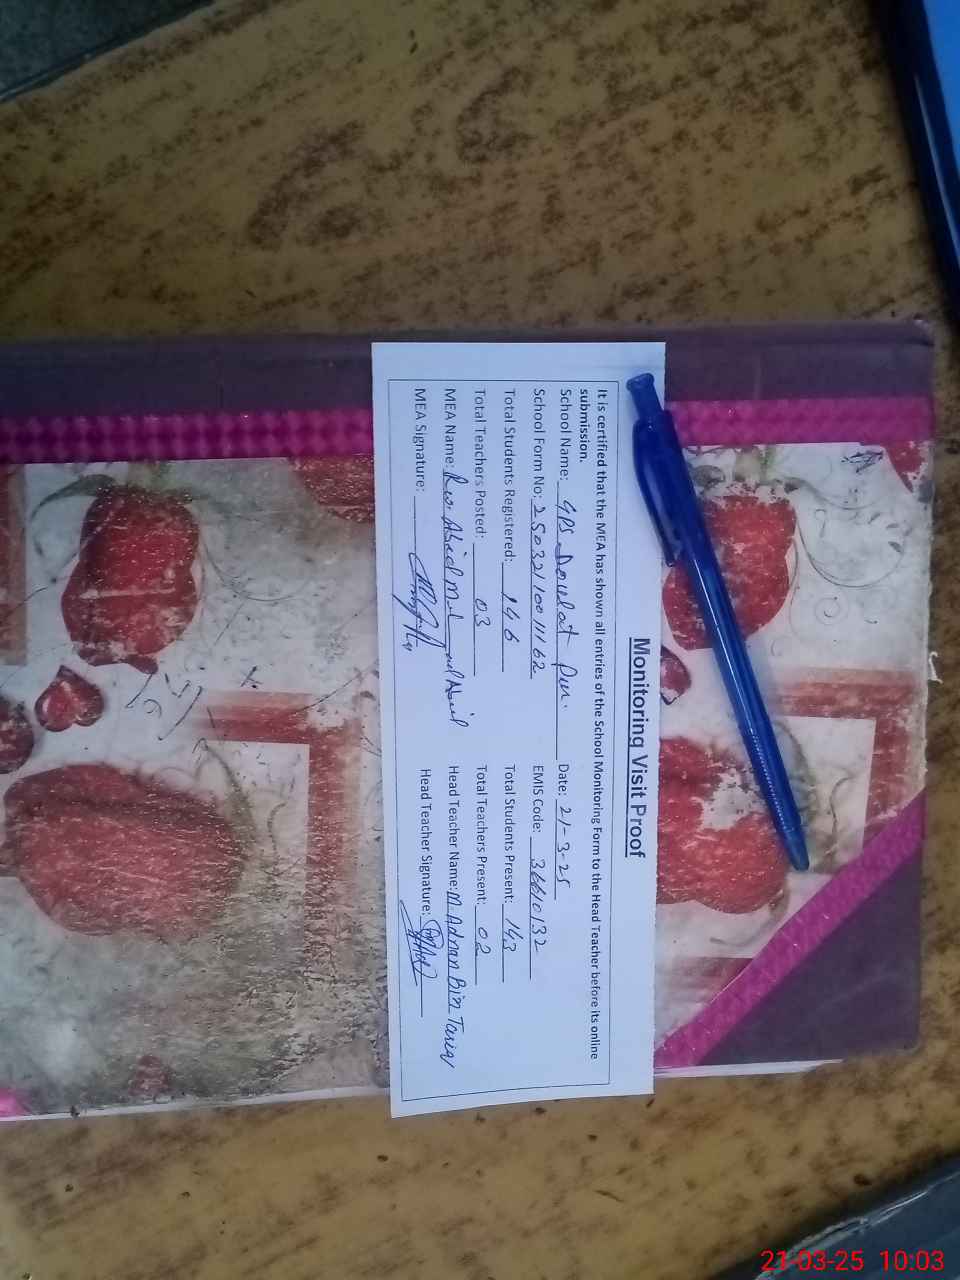 Monitoring Visit Proof
It is certified that the MEA has shown all entries of the School Monitoring Form to the Head Teacher before its online
submission.
School Name: GPS Doulat Pur. Date: 21-3-25
School Form No: 250321100111162 EMIS Code: 36610132
Total Students Registered: 146 Total Students Present: 143
Total Teachers Posted: 03 Total Teachers Present: 02
MEA Name: Abid Head Teacher Name: M. Adnan Bin Tariq
MEA Signature: Head Teacher Signature:
21-03-25 10:03